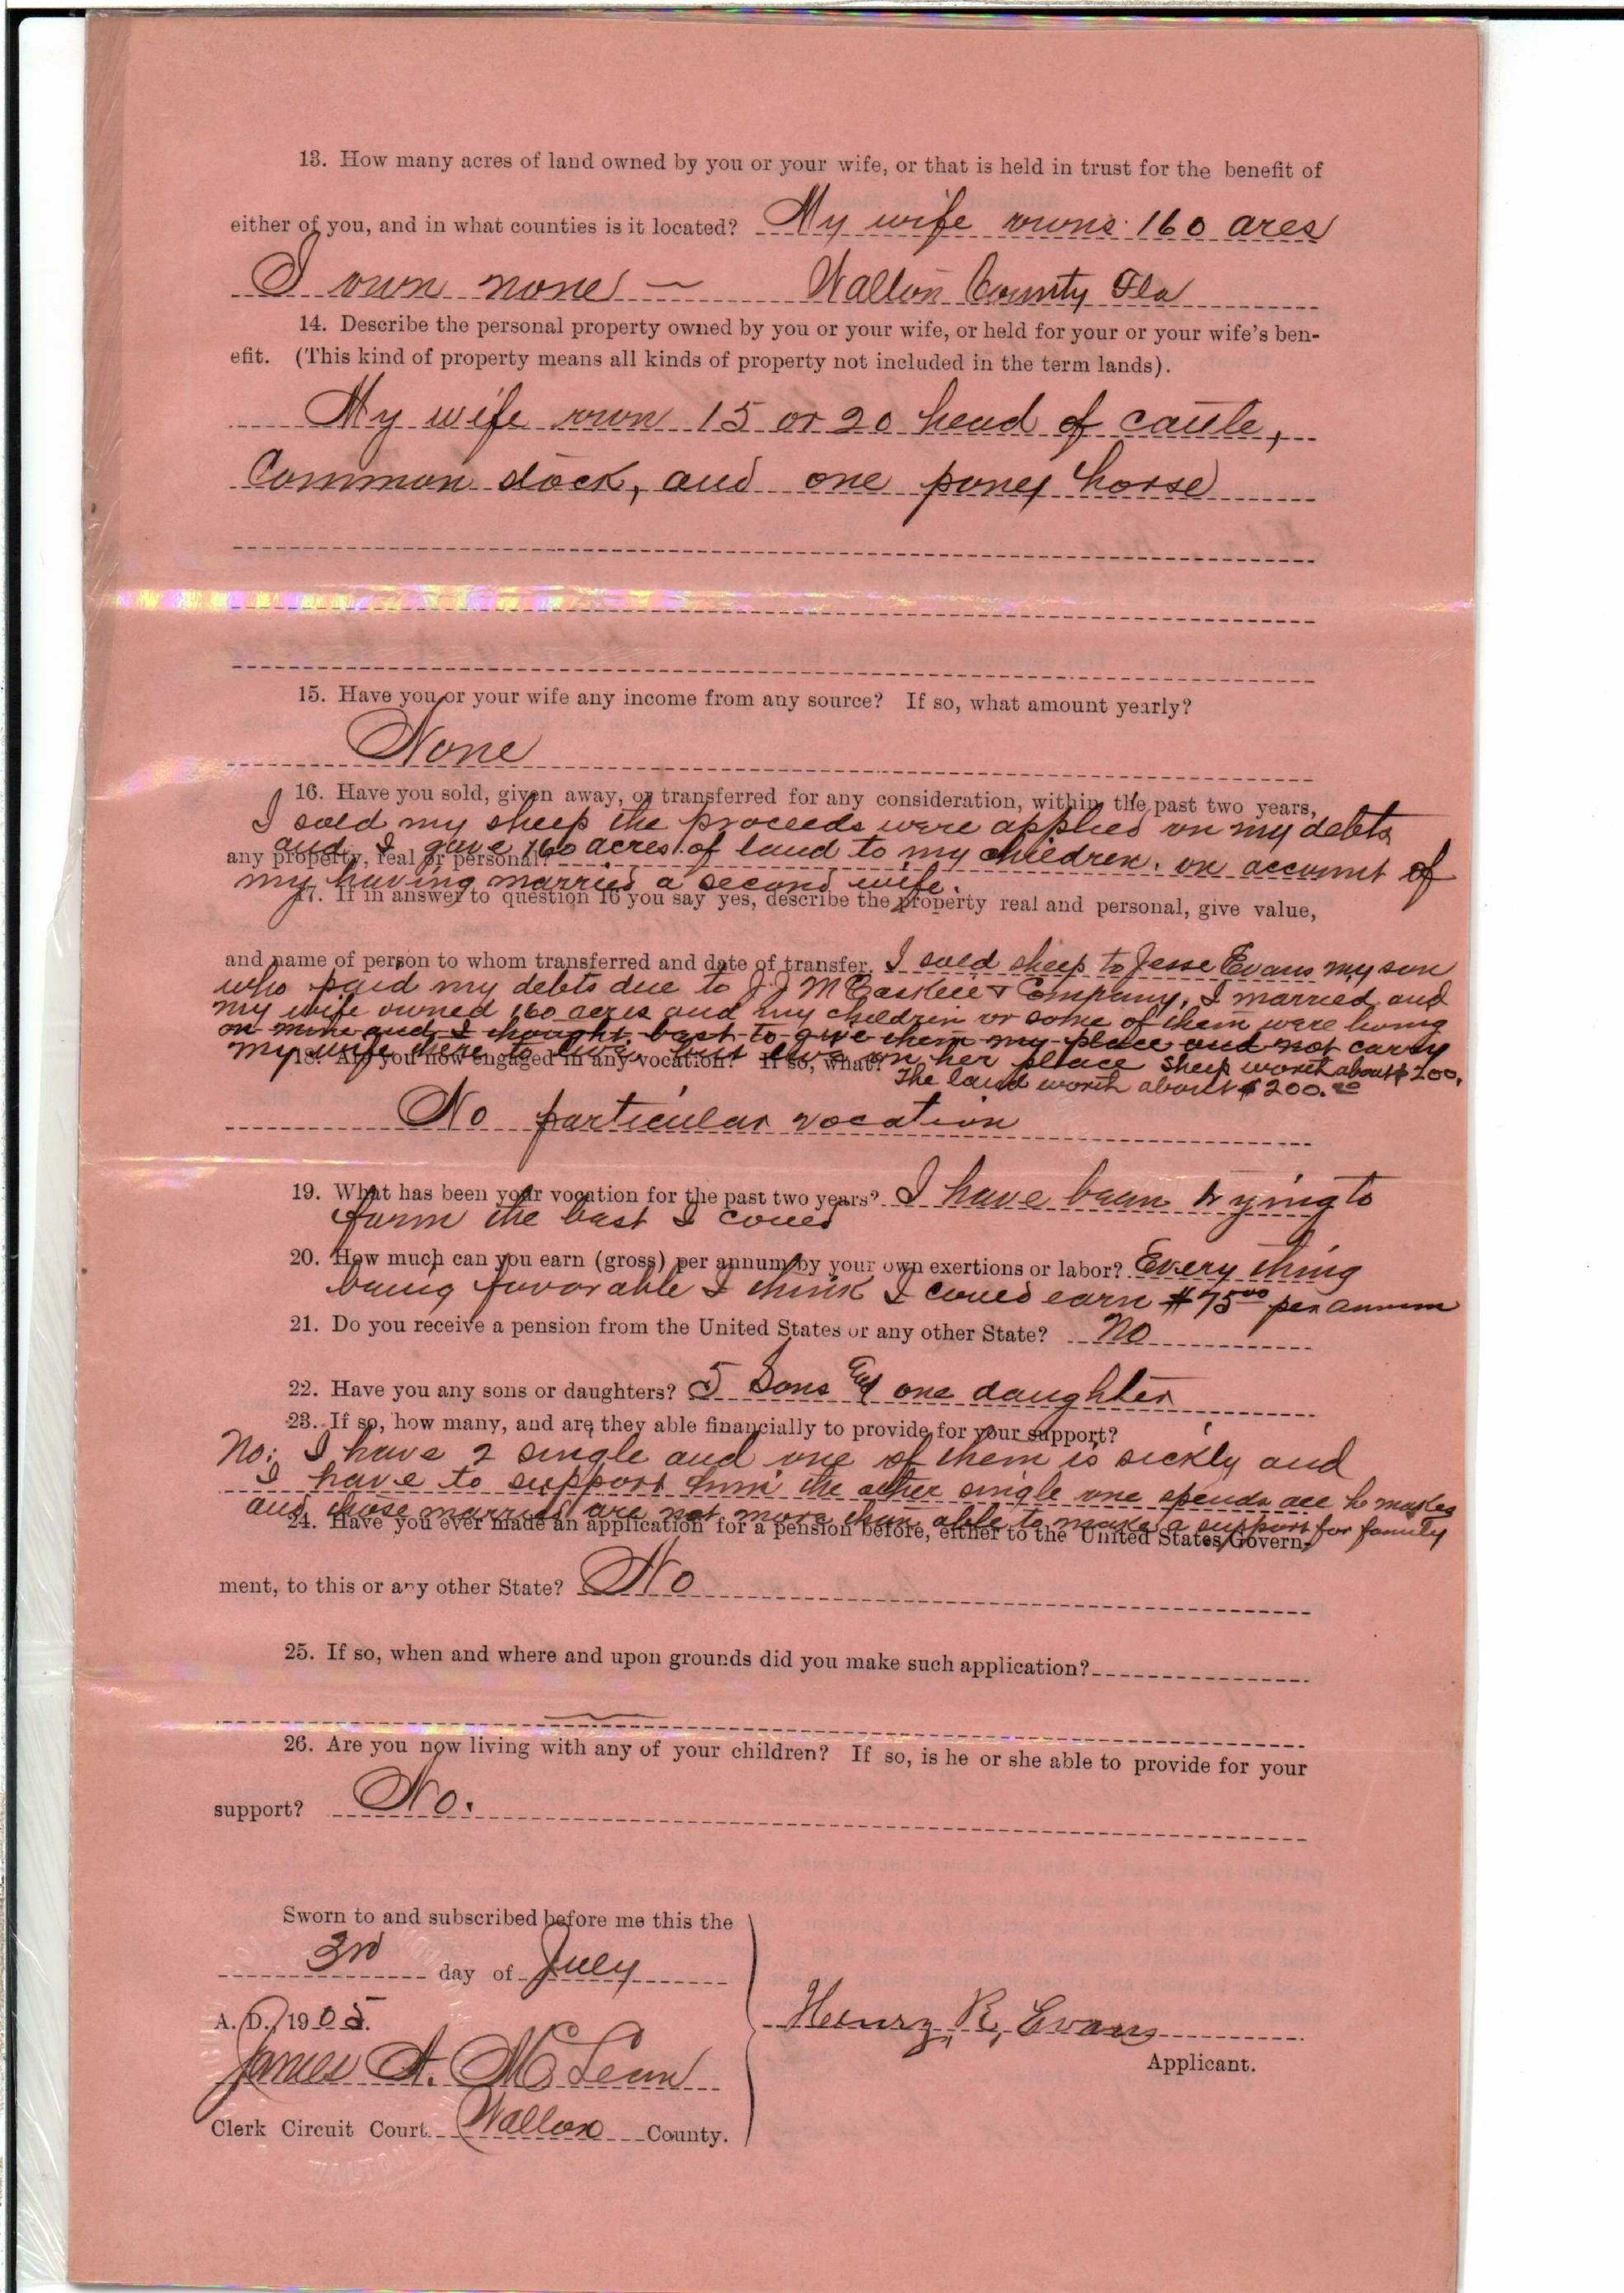 13. How many acres of land owned by you or your wife, or that is held in trust for the benefit of
either of you, and in what counties is it located? My wife owns 160 acres
I own none — Walton County Fla
14. Describe the personal property owned by you or your wife, or held for your or your wife's ben-
efit. (This kind of property means all kinds of property not included in the term lands).
My wife own 15 or 20 head of cattle,
Common stock, and one poney horse
15. Have you or your wife any income from any source? If so, what amount yearly?
None
16. Have you sold, given away, or transferred for any consideration, within the past two years,
I sold my sheep the proceeds were applied on my debts
any property, real or personal?
and I gave 160 acres of land to my children. on account of
my having married a second wife.
17. If in answer to question 16 you say yes, describe the property real and personal, give value,
and name of person to whom transferred and date of transfer. I sold sheep to Jesse Evans my son
who paid my debts due to J J McCaskill & Company. I married and
my wife owned 160 acres and my children or some of them were living
on mine and I thought best to give them my place and not carry
my wife there to live, but live on her place Sheep worth about $200.
18. Are you now engaged in any vocation? If so, what?
The land worth about $200.00
No particular vocation
19. What has been your vocation for the past two years? I have been trying to
farm the best I could
20. How much can you earn (gross) per annum by your own exertions or labor? Every thing
being favorable I think I could earn $75.00 per annum
21. Do you receive a pension from the United States or any other State? No
22. Have you any sons or daughters? 5 Sons and one daughter
23. If so, how many, and are they able financially to provide for your support?
No; I have 2 single and one of them is sickly and
I have to support him the other single one spends all he makes
and those married are not more than able to make a support for family
24. Have you ever made an application for a pension before, either to the United States Govern-
ment, to this or any other State? No
25. If so, when and where and upon grounds did you make such application?
26. Are you now living with any of your children? If so, is he or she able to provide for your
support? No.
Sworn to and subscribed before me this the
3rd day of July
A. D. 1905.
Henry R, Evans
James A. McLean
Applicant.
Clerk Circuit Court Walton County.